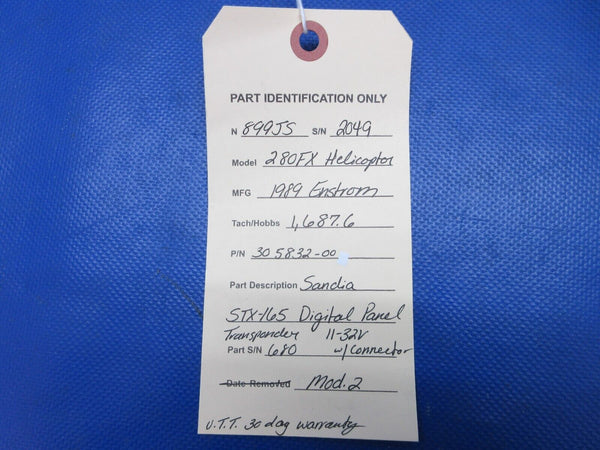 PART IDENTIFICATION ONLY
N 899JS S/N 2049
Model 280FX Helicopter
MFG 1989 Enstrom
Tach/Hobbs 1,687.6
P/N 305832-00
Part Description Sandia
STX-165 Digital Panel
Transponder 11-32V
Part S/N 680 w/Connector
Date Removed Mod.2
U.T.T. 30 day warranty